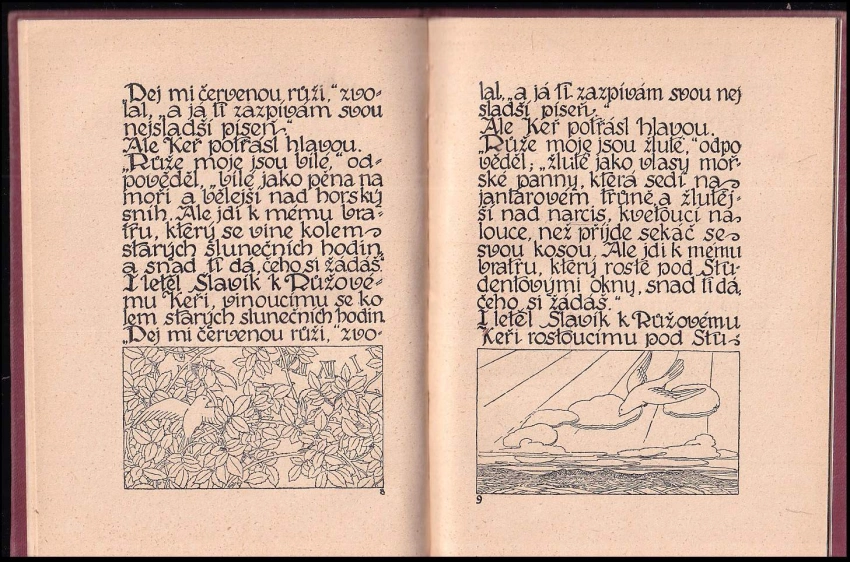 „Dej mi červenou růži,“ zvo-
lal, „a já ti zazpívám svou
nejsladší píseň.“
Ale Keř potřásl hlavou.
„Růže moje jsou bílé,“ od-
pověděl, „bílé jako pěna na
moři a bělejší nad horský
sníh. Ale jdi k mému bra-
tru, který se vine kolem
starých slunečních hodin,
a snad ti dá, čeho si žádáš.“
I letěl Slavík k Růžové-
mu Keři, vinoucímu se ko
lem starých slunečních hodin
„Dej mi červenou růži,“ zvo-
XII I
8
lal, „a já ti zazpívám svou nej
sladší píseň.“
Ale Keř potřásl hlavou.
„Růže moje jsou žluté,“ odpo
věděl; „žluté jako vlasy moř-
ské panny, která sedí na
jantarovém trůně a žlutěj-
ší nad narcis, kvetoucí na
louce, než přijde sekáč se
svou kosou. Ale jdi k mému
bratru, který roste pod Stu-
dentovými okny, snad ti dá,
čeho si žádáš.“
I letěl Slavík k Růžovému
Keři rostoucímu pod Stu-
9